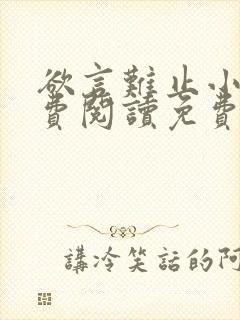 欲言難止小
費閱讀免費
講冷笑話的阿